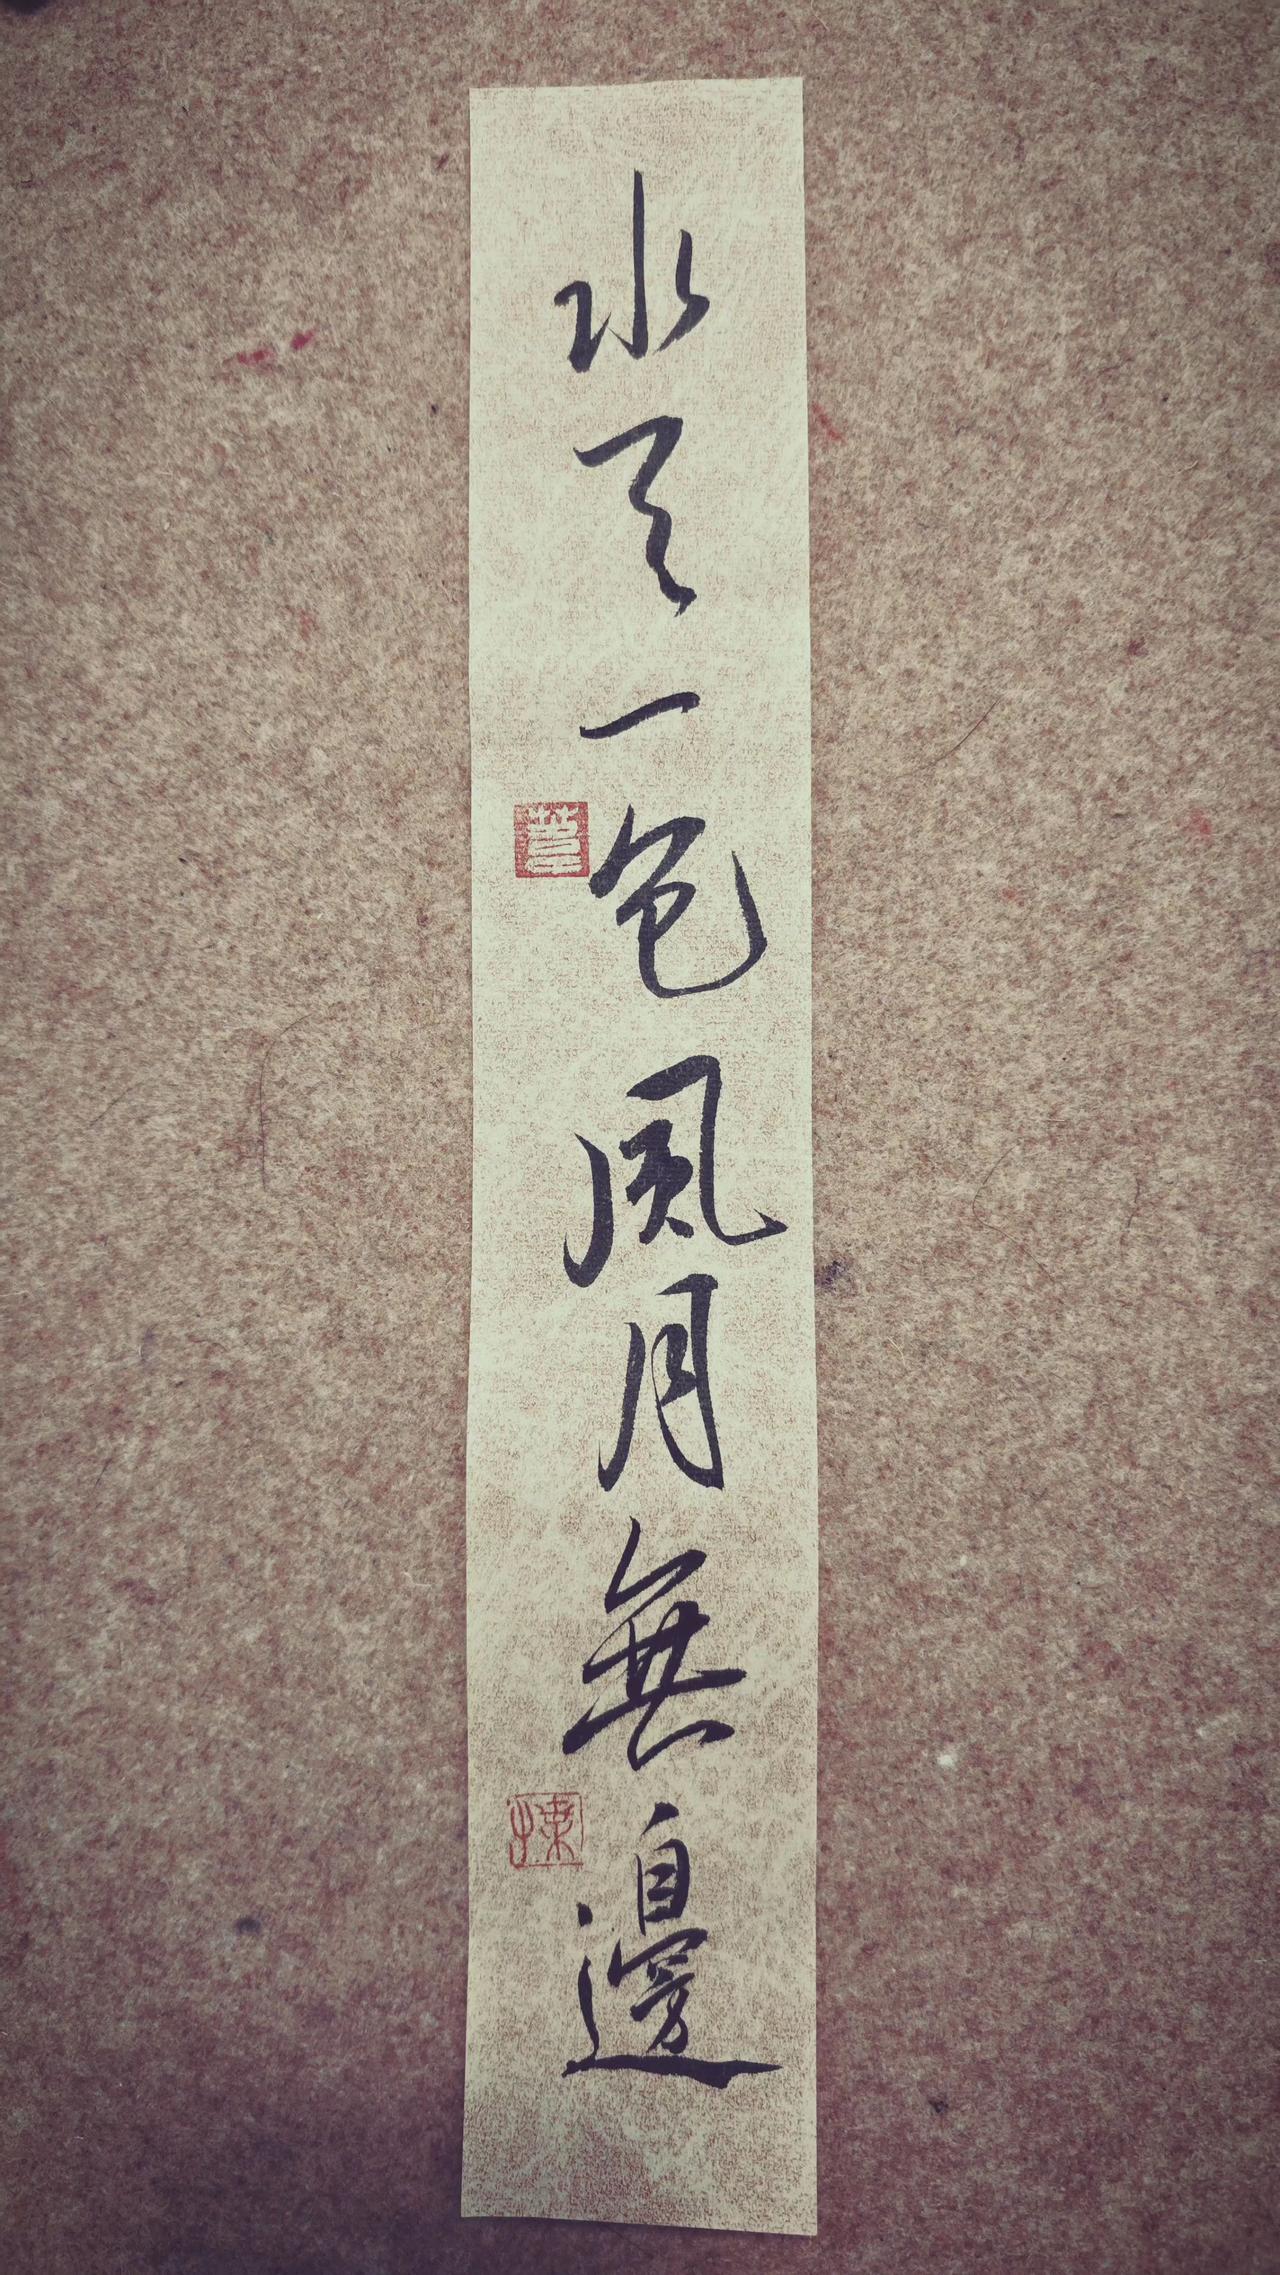 水天一色風月無邊